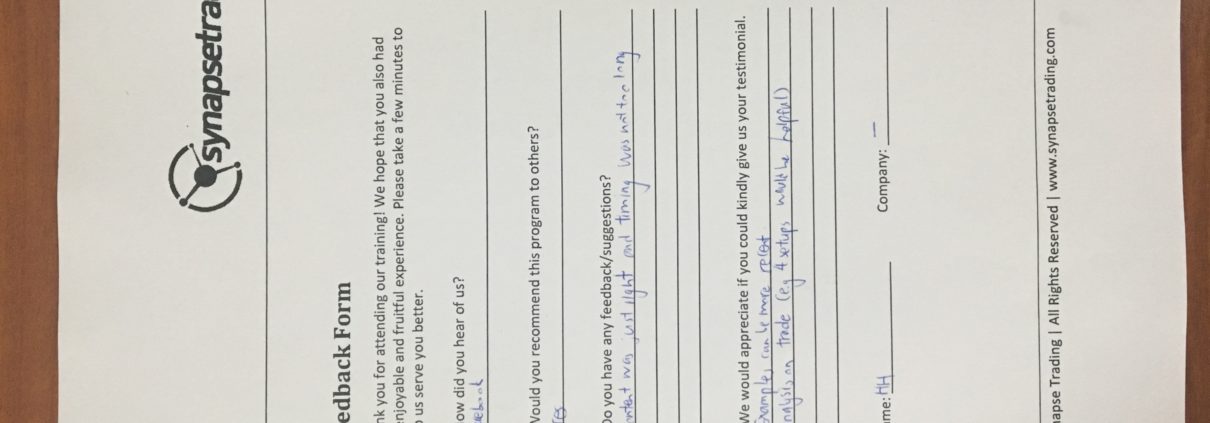 synapsetra
edback Form
nk you for attending our training! We hope that you also had
njoyable and fruitful experience. Please take a few minutes to
us serve you better.
ow did you hear of us?
cebook
Would you recommend this program to others?
es
Do you have any feedback/suggestions?
ntent was just right and timing was not too long
We would appreciate if you could kindly give us your testimonial.
Examples can be more recent
nalysis on trade (e.g 4 setups would be helpful)
me: HH Company: —
napse Trading | All Rights Reserved | www.synapsetrading.com